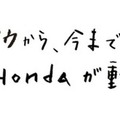 ウから、今まで
Hondaが